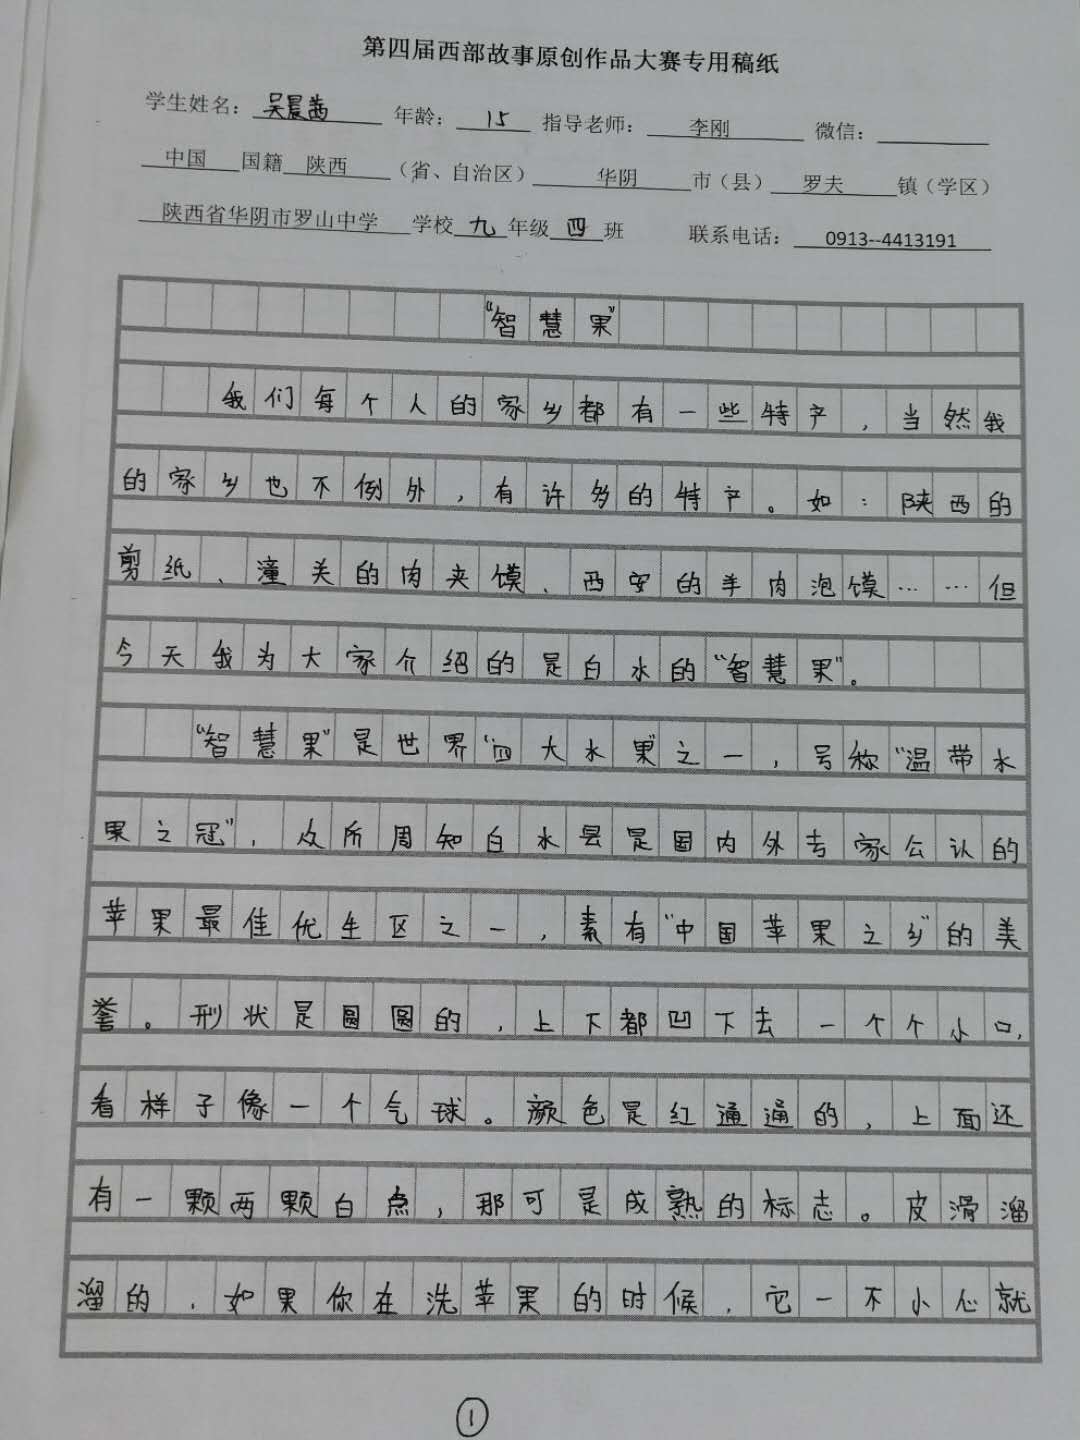 第四届西部故事原创作品大赛专用稿纸
学生姓名：吴晨茜 年龄：15 指导老师：李刚 微信：
中国 国籍 陕西 （省、自治区） 华阴 市（县） 罗夫 镇（学区）
陕西省华阴市罗山中学 学校 九 年级 四 班 联系电话：0913--4413191
“智慧果”
我们每个人的家乡都有一些特产，当然我
的家乡也不例外，有许多的特产。如：陕西的
剪纸、潼关的肉夹馍、西安的羊肉泡馍……但
今天我为大家介绍的是白水的“智慧果”。
“智慧果”是世界“四大水果”之一，号称“温带水
果之冠”，众所周知白水县是国内外专家公认的
苹果最佳优生区之一，素有“中国苹果之乡”的美
誉。形状是圆圆的，上下都凹下去一个个小口，
看样子像一个气球。颜色是红通通的，上面还
有一颗两颗白点，那可是成熟的标志。皮滑溜
溜的，如果你在洗苹果的时候，它一不小心就
1